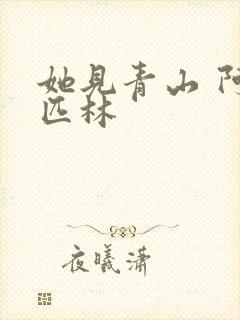 她见青山 阿
匹林
夜曦潇